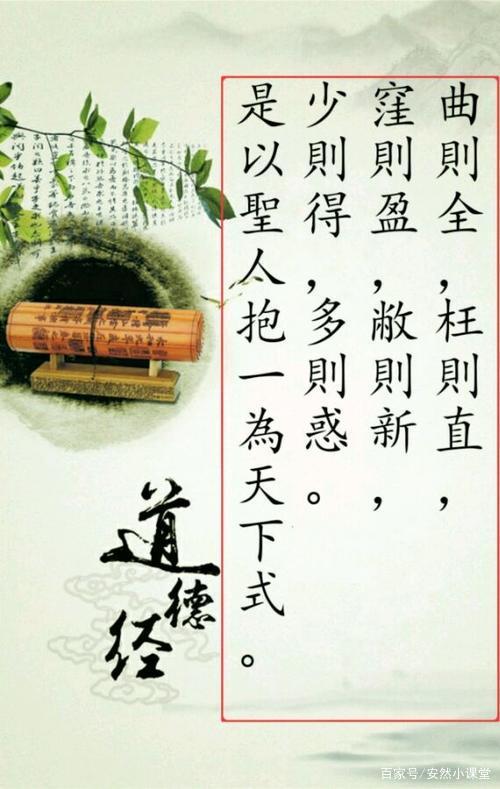 曲則全，枉則直，
窪則盈，敝則新，
少則得，多則惑。
是以聖人抱一為天下式。
道德经
百家号/安然小课堂